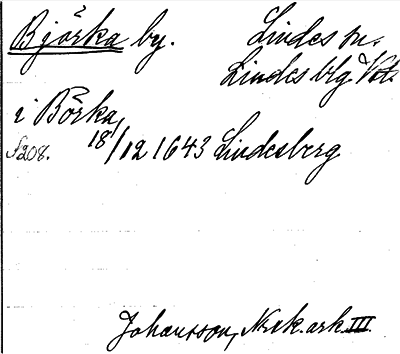 Björka by. Lindes sn.
Lindesblg Vst.
i Börka,
f208. 18/12 1643 Lindesberg
Johansson, Nxek. ark. III.